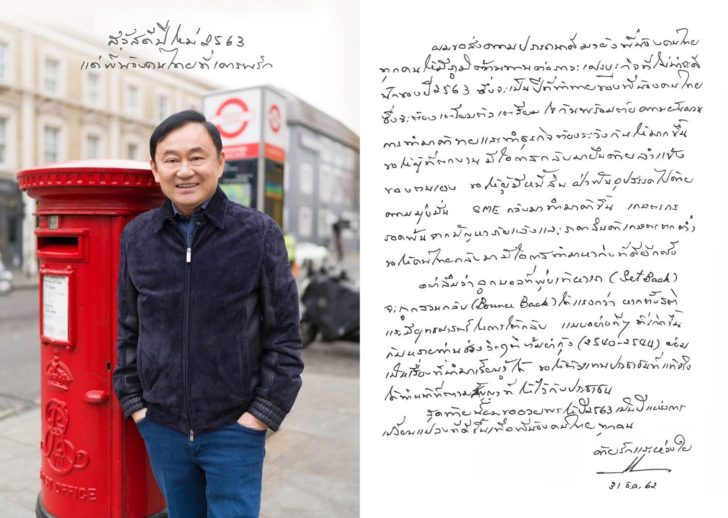 สวัสดีปีใหม่ 2563
แด่พี่น้องคนไทยที่เคารพรัก
POST OFFICE
ผมขอส่งความปรารถนาดีมายังพี่น้องคนไทย
ทุกคนให้มีภูมิต้านทานต่อภาวะเศรษฐกิจที่ไม่น่าจะดี
นักของปี 2563 ซึ่งจะเป็นปีที่ท้าทายของพี่น้องคนไทย
ซึ่งจะต้องเตรียมตัวเตรียมใจกันพร้อมด้วย
การทำมาค้าขายและทำธุรกิจต้องระวังกันให้มากขึ้น
ขอให้ผู้ที่ตกงาน มีโอกาสกลับมายืนด้วยลำแข้ง
ของตนเอง ขอให้ผู้มีหนี้สิน ฝ่าฟันอุปสรรคไปด้วย
ความมุ่งมั่น SME กลับมาทำมาค้าขึ้น เกษตรกร
รอดพ้นจากปัญหาภัยแล้งและราคาสินค้าเกษตรตกต่ำ
ขอให้คนไทยกลับมามีโอกาสทำมาหากินที่ดีอีกครั้ง
อย่าลืมว่า ลูกบอลที่ (Set Back)
จะถูกสวนกลับ (Bounce Back) ได้แรงกว่า หากตั้งสติ
และมียุทธศาสตร์ในการโต้กลับ แบบอย่างดีๆ ที่เกิดขึ้น
กับหลายท่านช่วงวิกฤติต้มยำกุ้ง (2540-2544) ย่อม
เป็นเรื่องที่นำมาเรียนรู้ได้ ขอให้ผู้แทนประชาชนที่แท้จริง
ได้ทำหน้าที่ตามสัญญาที่ให้ไว้กับประชาชน
สุดท้ายนี้ผมขออวยพรให้ปี 2563 เป็นปีแห่งการ
เปลี่ยนแปลงที่ดีขึ้นเพื่อพี่น้องคนไทยทุกคน
ด้วยรักและห่วงใย
31 ธ.ค. 62